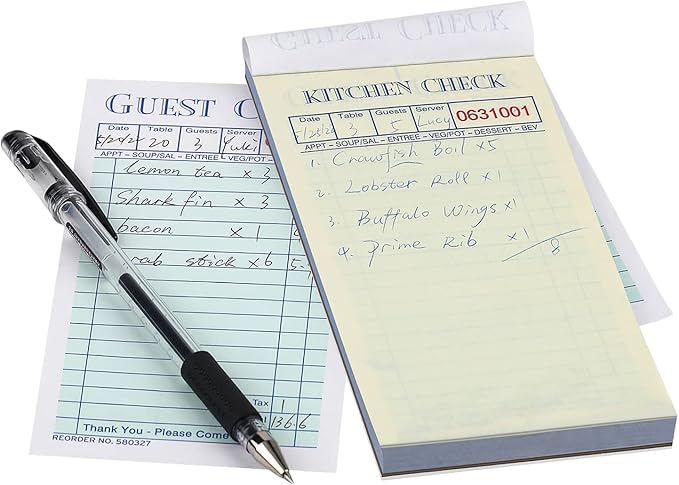 GUEST C
Date Table Guests Server
20 3 Yuki
APPT - SOUP/SAL - ENTREE - VEG/POT
Lemon tea x 3
Shark fin x 3
bacon x 1
rab stick x 6 5.
Tax 1
136.6
Thank You - Please Come
REORDER NO. 580327
GUEST CHECK
KITCHEN CHECK
Date Table Guests Server 0631001
3 5 Lucy
APPT - SOUP/SAL - ENTREE - VEG/POT - DESSERT - BEV
1. Crawfish Boil x5
2. Lobster Roll x1
3. Buffalo Wings x1
4. Prime Rib x1
8